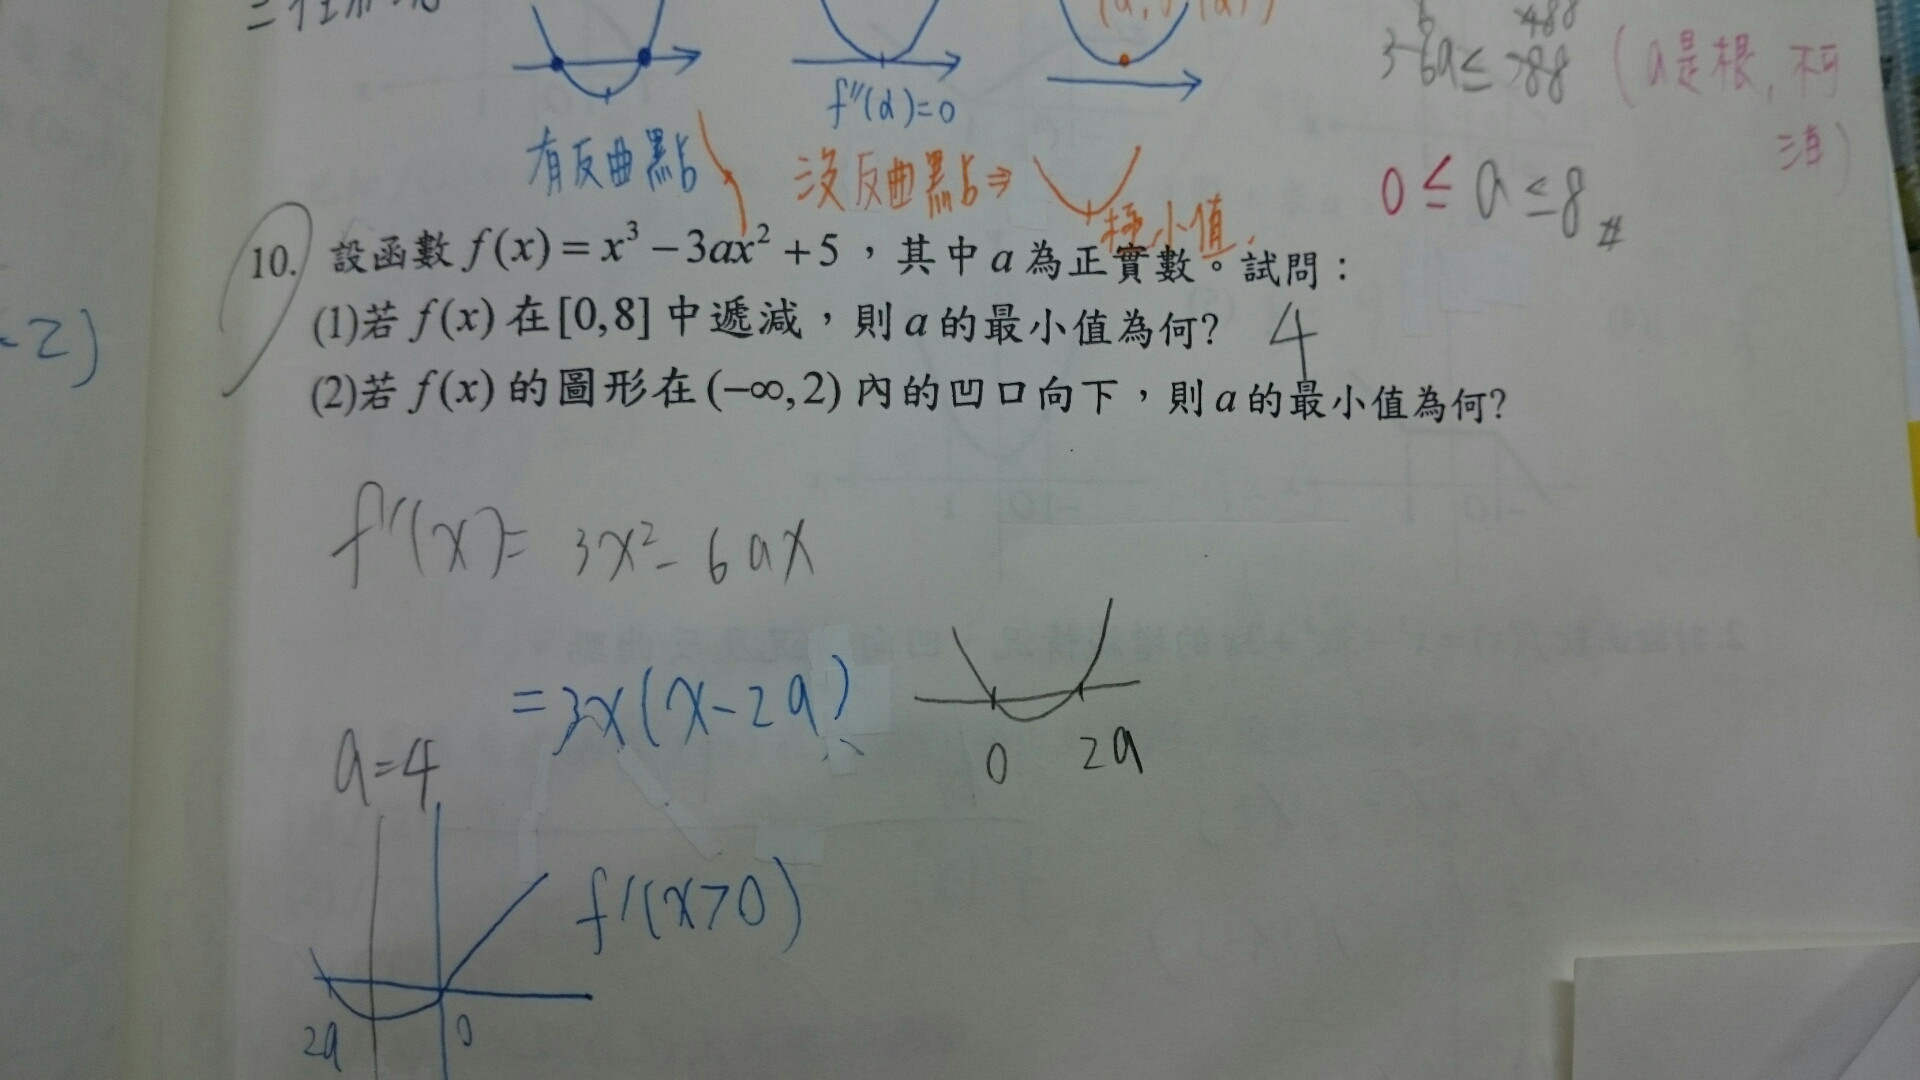 f''(α)=0
有反曲點
沒反曲點⇒
極小值
3-6a≤
(a是根,不可
0≤a≤8 #
10. 設函數 f(x)=x³−3ax²+5,其中 a 為正實數。試問:
(1)若 f(x) 在 [0,8] 中遞減,則 a 的最小值為何? 4
(2)若 f(x) 的圖形在 (−∞,2) 內的凹口向下,則 a 的最小值為何?
-2)
f'(x)= 3x²-6ax
=3x(x-2a)
0 2a
a=4
f'(x>0)
2a 0